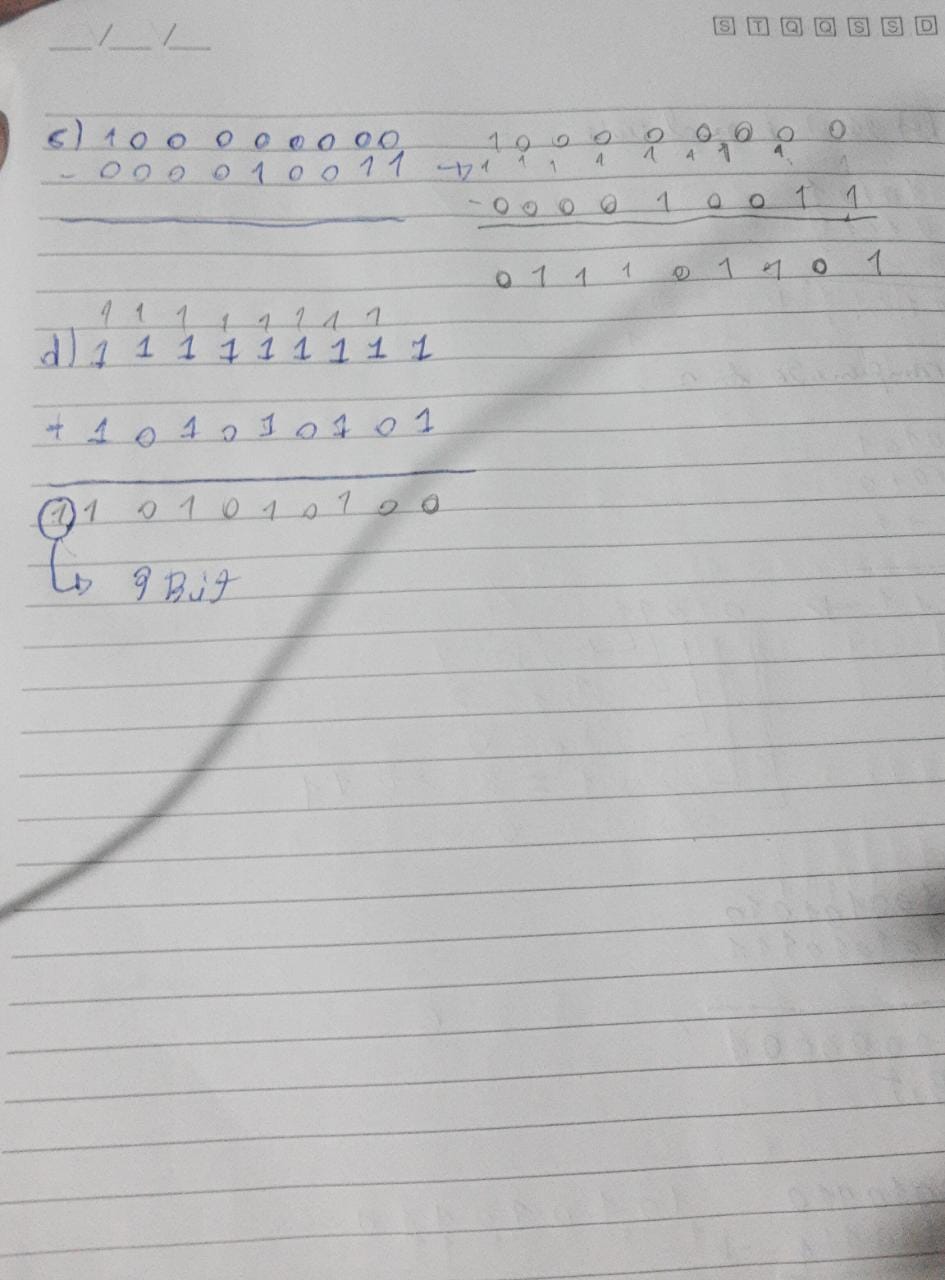 __/__/__ S T Q Q S S D
c) 1 0 0 0 0 0 0 0 0
- 0 0 0 0 1 0 0 1 1 →
1 0 0 0 0 0 0 0 0
1 1 1 1 1 1 1 1 1
- 0 0 0 0 1 0 0 1 1
0 1 1 1 0 1 1 0 1
1 1 1 1 1 1 1 1
d) 1 1 1 1 1 1 1 1 1
+ 1 0 1 0 1 0 1 0 1
1 1 0 1 0 1 0 1 0 0
↳ 9 Bit